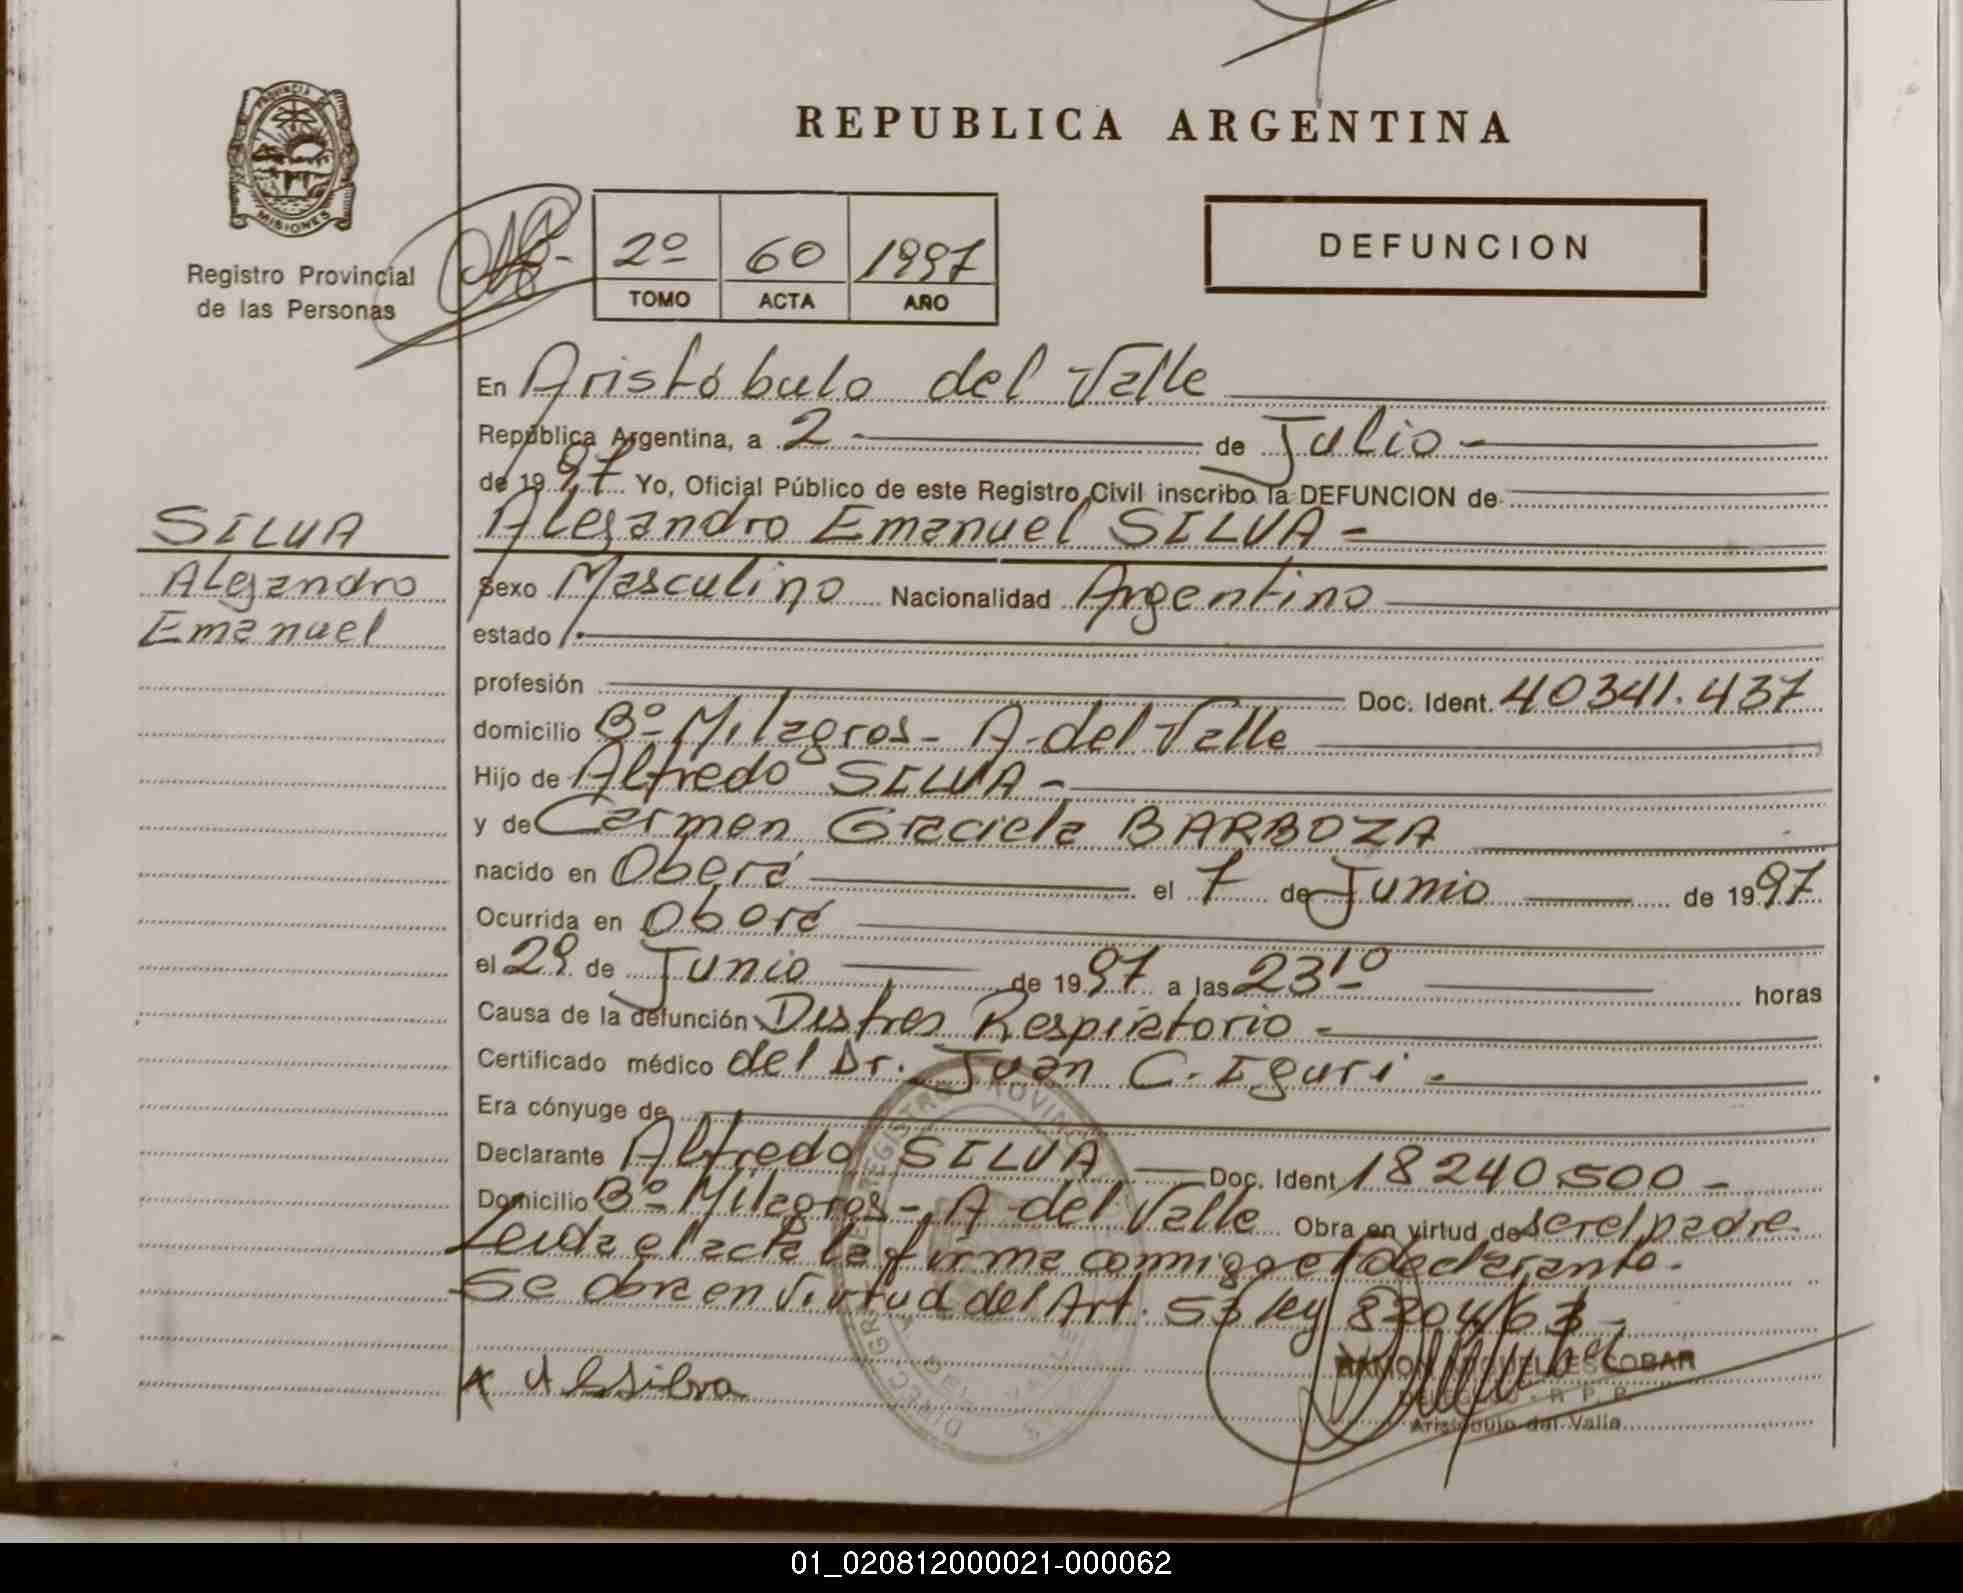 REPUBLICA ARGENTINA
PROVINCIA DE
MISIONES
Registro Provincial
de las Personas
2º 60 1997
TOMO ACTA AÑO
DEFUNCION
SILVA
Alejandro
Emanuel
En Aristóbulo del Valle
República Argentina, a 2 - de Julio -
de 1997 Yo, Oficial Público de este Registro Civil inscribo la DEFUNCION de
Alejandro Emanuel SILVA -
Sexo Masculino Nacionalidad Argentino
estado
profesión Doc. Ident. 40341.437
domicilio Bº Milagros - A. del Valle
Hijo de Alfredo SILVA -
y de Carmen Graciela BARBOZA
nacido en Oberá el 7 de Junio de 1997
Ocurrida en Oberá
el 29 de Junio de 1997 a las 23 10 horas
Causa de la defunción Distres Respiratorio -
Certificado médico del Dr. Juan C. Iguri .
Era cónyuge de
Declarante Alfredo SILVA Doc. Ident 18240.500 -
Domicilio Bº Milagros - A. del Valle Obra en virtud de ser el padre
Leida el acta la firma conmigo el declarante.
Se obra en virtud del Art. 53 ley 8204/63 -
x Al Silva
RAMON MIGUEL ESCOBAR
DELEGADO - R. P. P.
Aristóbulo del Valle
01_020812000021-000062